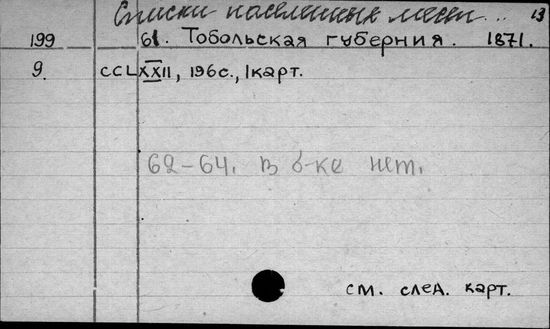 Списки населенных мест... 13
199 61. Тобольская губерния. 1871.
9. CCLXXII, 196с., 1карт.
62-64. в б-ке нет.
см. след. карт.